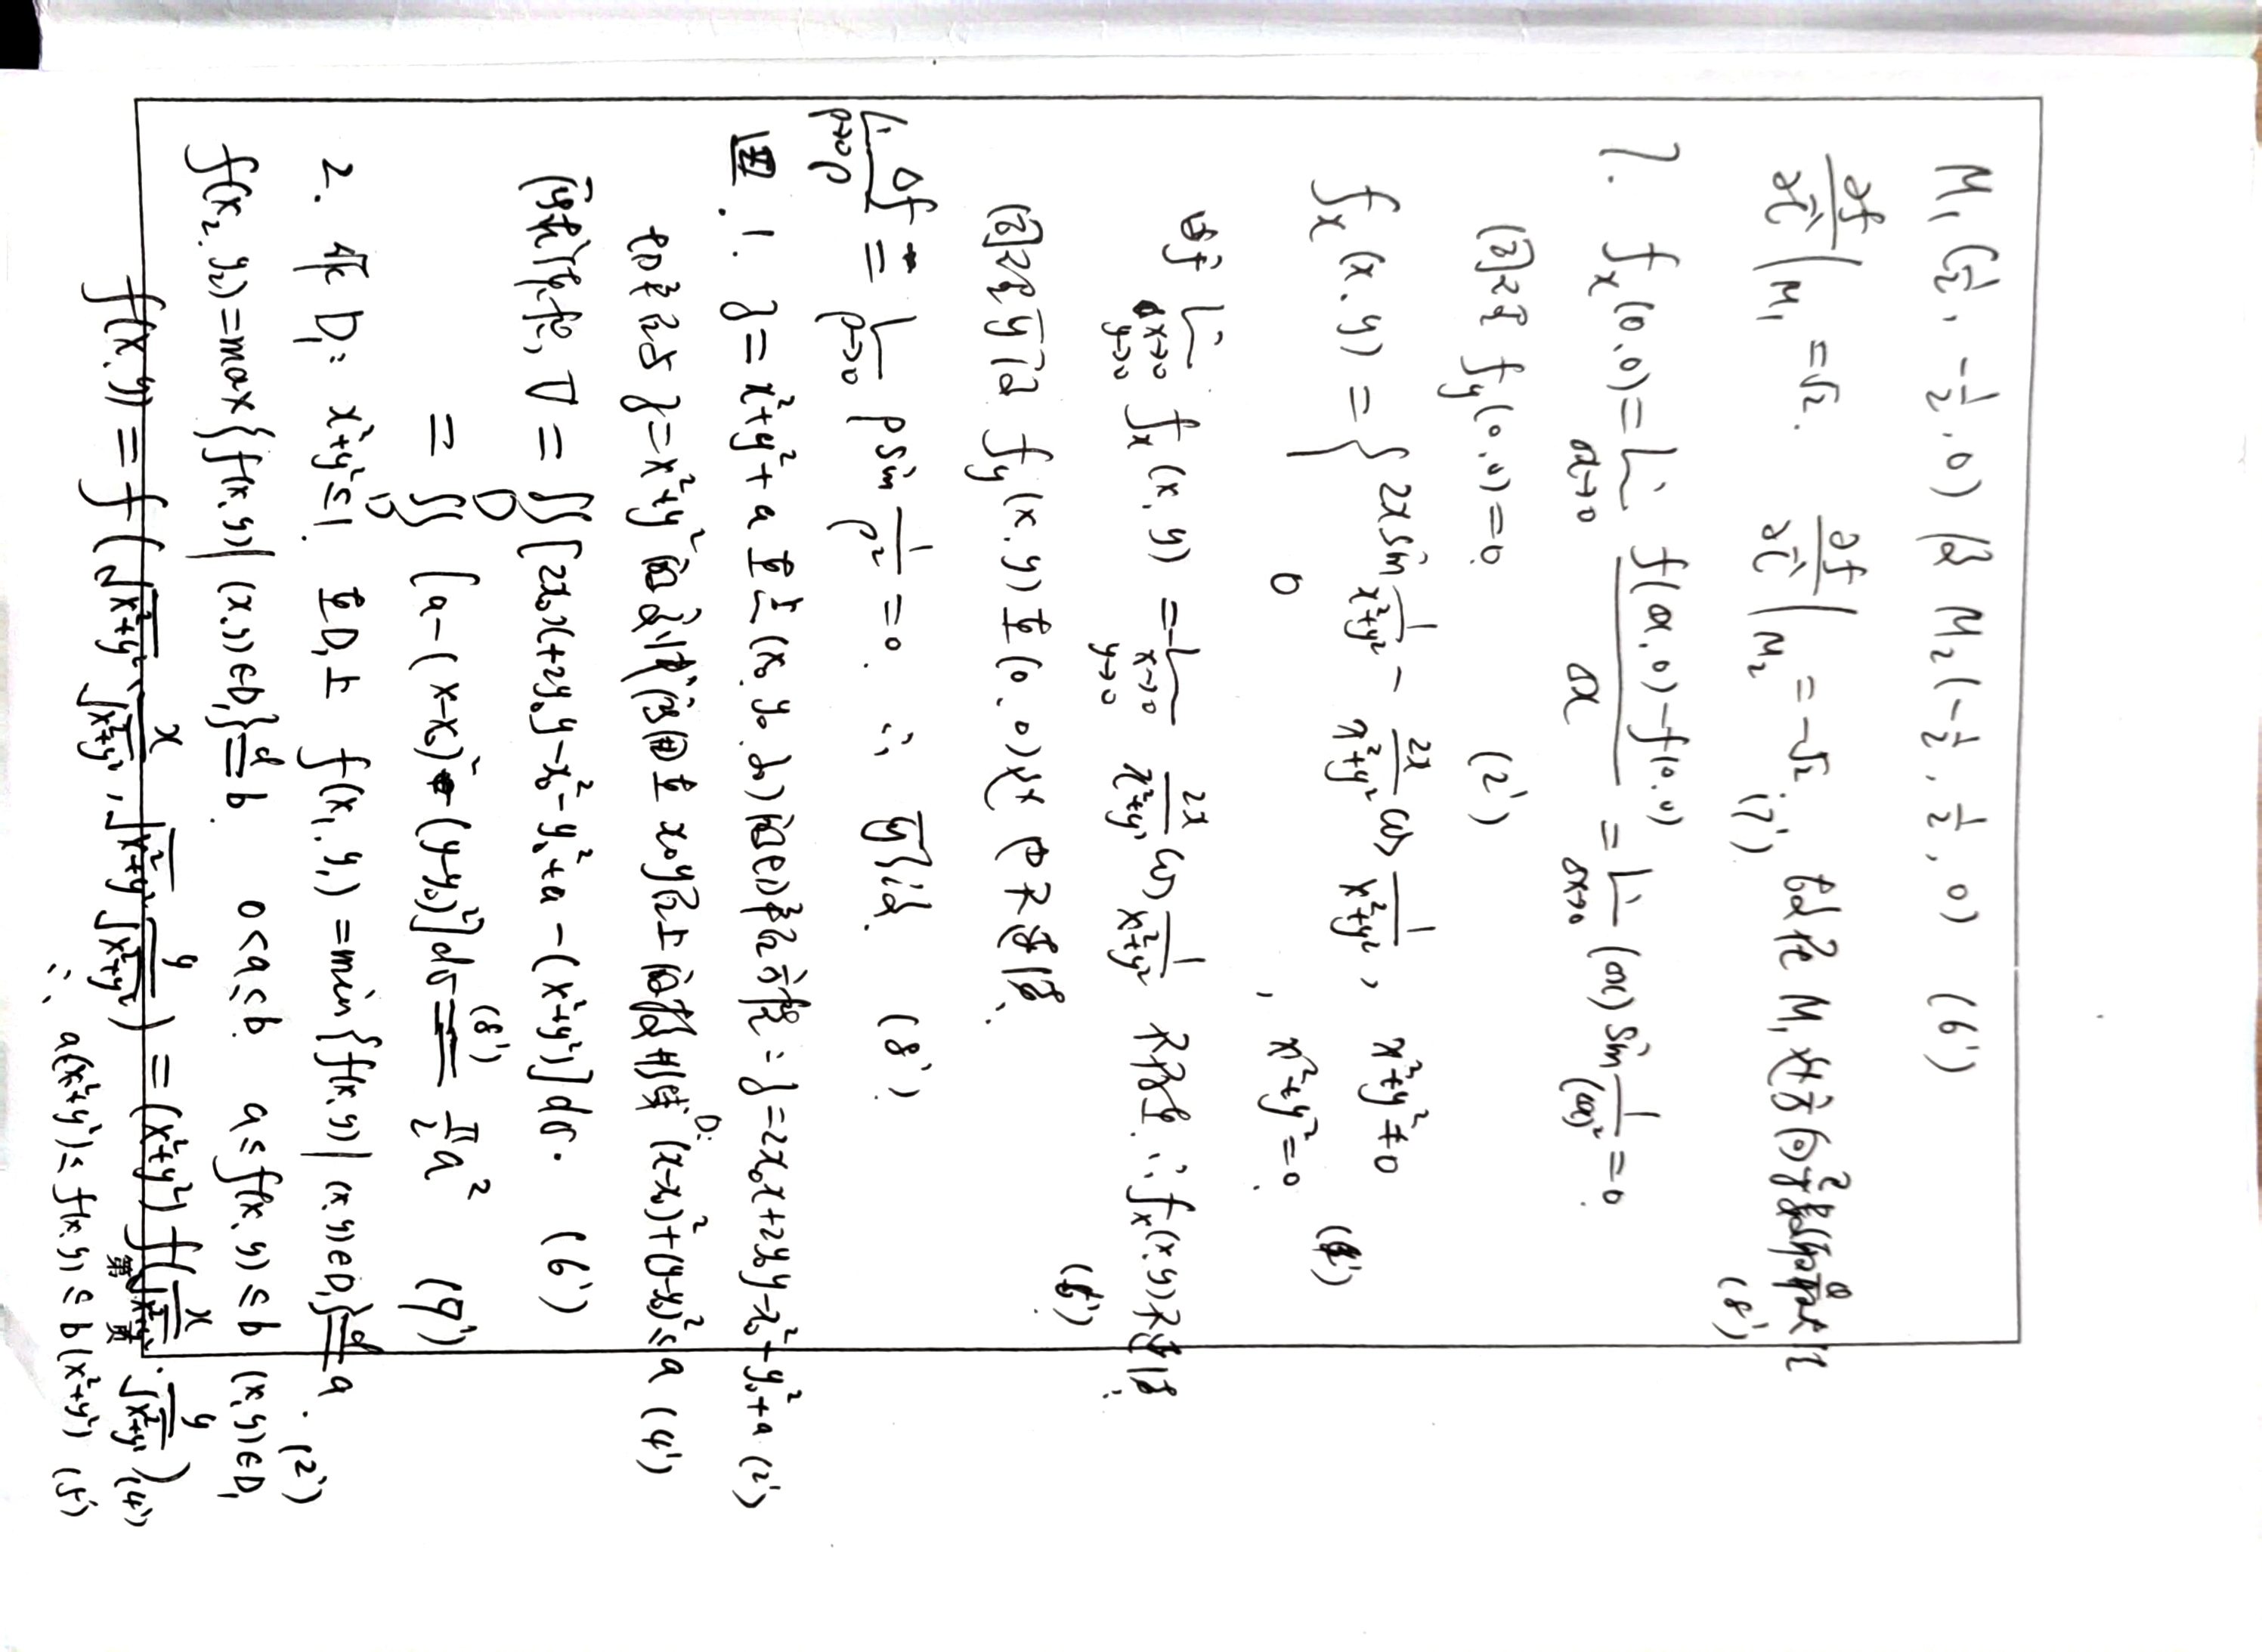 M₁(1/2, -1/2, 0) 及 M₂(-1/2, 1/2, 0) (6')
∂f/∂l|M₁ = √2. ∂f/∂l|M₂ = -√2. (7') 故在 M₁ 处方
(8')
7. fx(0,0) = lim Δx→0 f(Δx,0)-f(0,0)/Δx = lim Δx→0 (Δx) sin 1/(Δx)² = 0.
同理 fy(0,0) = 0 (2')
fx(x,y) = { 2x sin 1/x²+y² - 2x/x²+y² cos 1/x²+y², x²+y²≠0
0 , x²+y²=0. (4')
lim x→0 y→0 fx(x,y) = -lim x→0 y→0 2x/x²+y² cos 1/x²+y² 不存在. ∴ fx(x,y)不连续.
同理可得 fy(x,y)在(0,0)处也不连续. (6')
lim ρ→0 Δf/ρ = lim ρ→0 ρ sin 1/ρ² = 0. ∴ 可微. (8')
四. 1. z = x²+y²+a 在点(x₀,y₀,z₀)的切平面方程: z = 2x₀x+2y₀y-x₀²-y₀²+a (2')
切平面与 z=x²+y² 的交线在 xoy面上的投影 D: (x-x₀)²+(y-y₀)² ≤ a (4')
所求体积, V = ∬D [2x₀x+2y₀y-x₀²-y₀²+a-(x²+y²)]dσ. (6')
= ∬D [a-(x-x₀)²-(y-y₀)²]dσ (8') = π/2 a² (9')
2. 在 D₁: x²+y²≤1. 在D₁上 f(x₁,y₁) = min{f(x,y)|(x,y)∈D₁} = a. (2')
f(x₂,y₂) = max{f(x,y)|(x,y)∈D₁} = b. 0<a≤b. a≤f(x,y)≤b (x,y)∈D₁
f(x,y) = f(√x²+y² x/√x²+y², √x²+y² y/√x²+y²) = (x²+y²) f(x/√x²+y², y/√x²+y²) (4')
∴ a(x²+y²) ≤ f(x,y) ≤ b(x²+y²) (5')
第 页